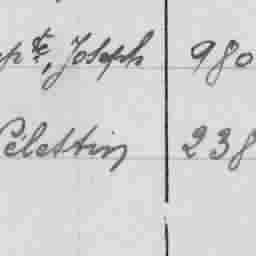 pte, Joseph 980
Célestin 238